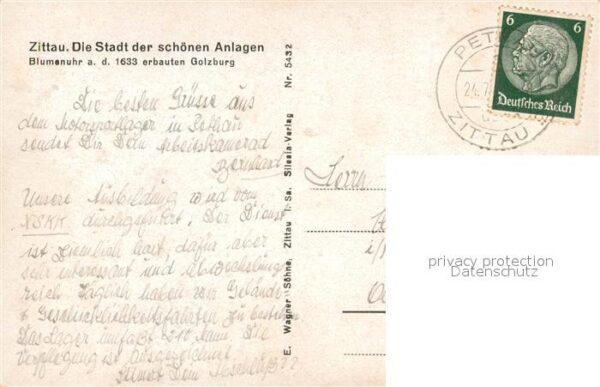 Zittau. Die Stadt der schönen Anlagen
Blumenuhr a. d. 1633 erbauten Golzburg
Die besten Grüsse aus
dem Motorsportlager in Pethau
sendet Dir Dein Arbeitskamerad
Bernhard
Unsere Ausbildung wird vom
NSKK durchgeführt. Der Dienst
ist ziemlich hart, dafür aber
sehr interessant und Abwechslungs
reich. Täglich haben wir Gelände
+ Geschicklichkeitsfahrten zu bestehen
Das Lager umfaßt 210 Mann. Die
Verpflegung ist ausgezeichnet
E. Wagner Söhne, Zittau i. Sa. Silesia-Verlag Nr. 5432
Herrn
PETHAU
ZITTAU
6 6
Deutsches Reich
privacy protection
Datenschutz